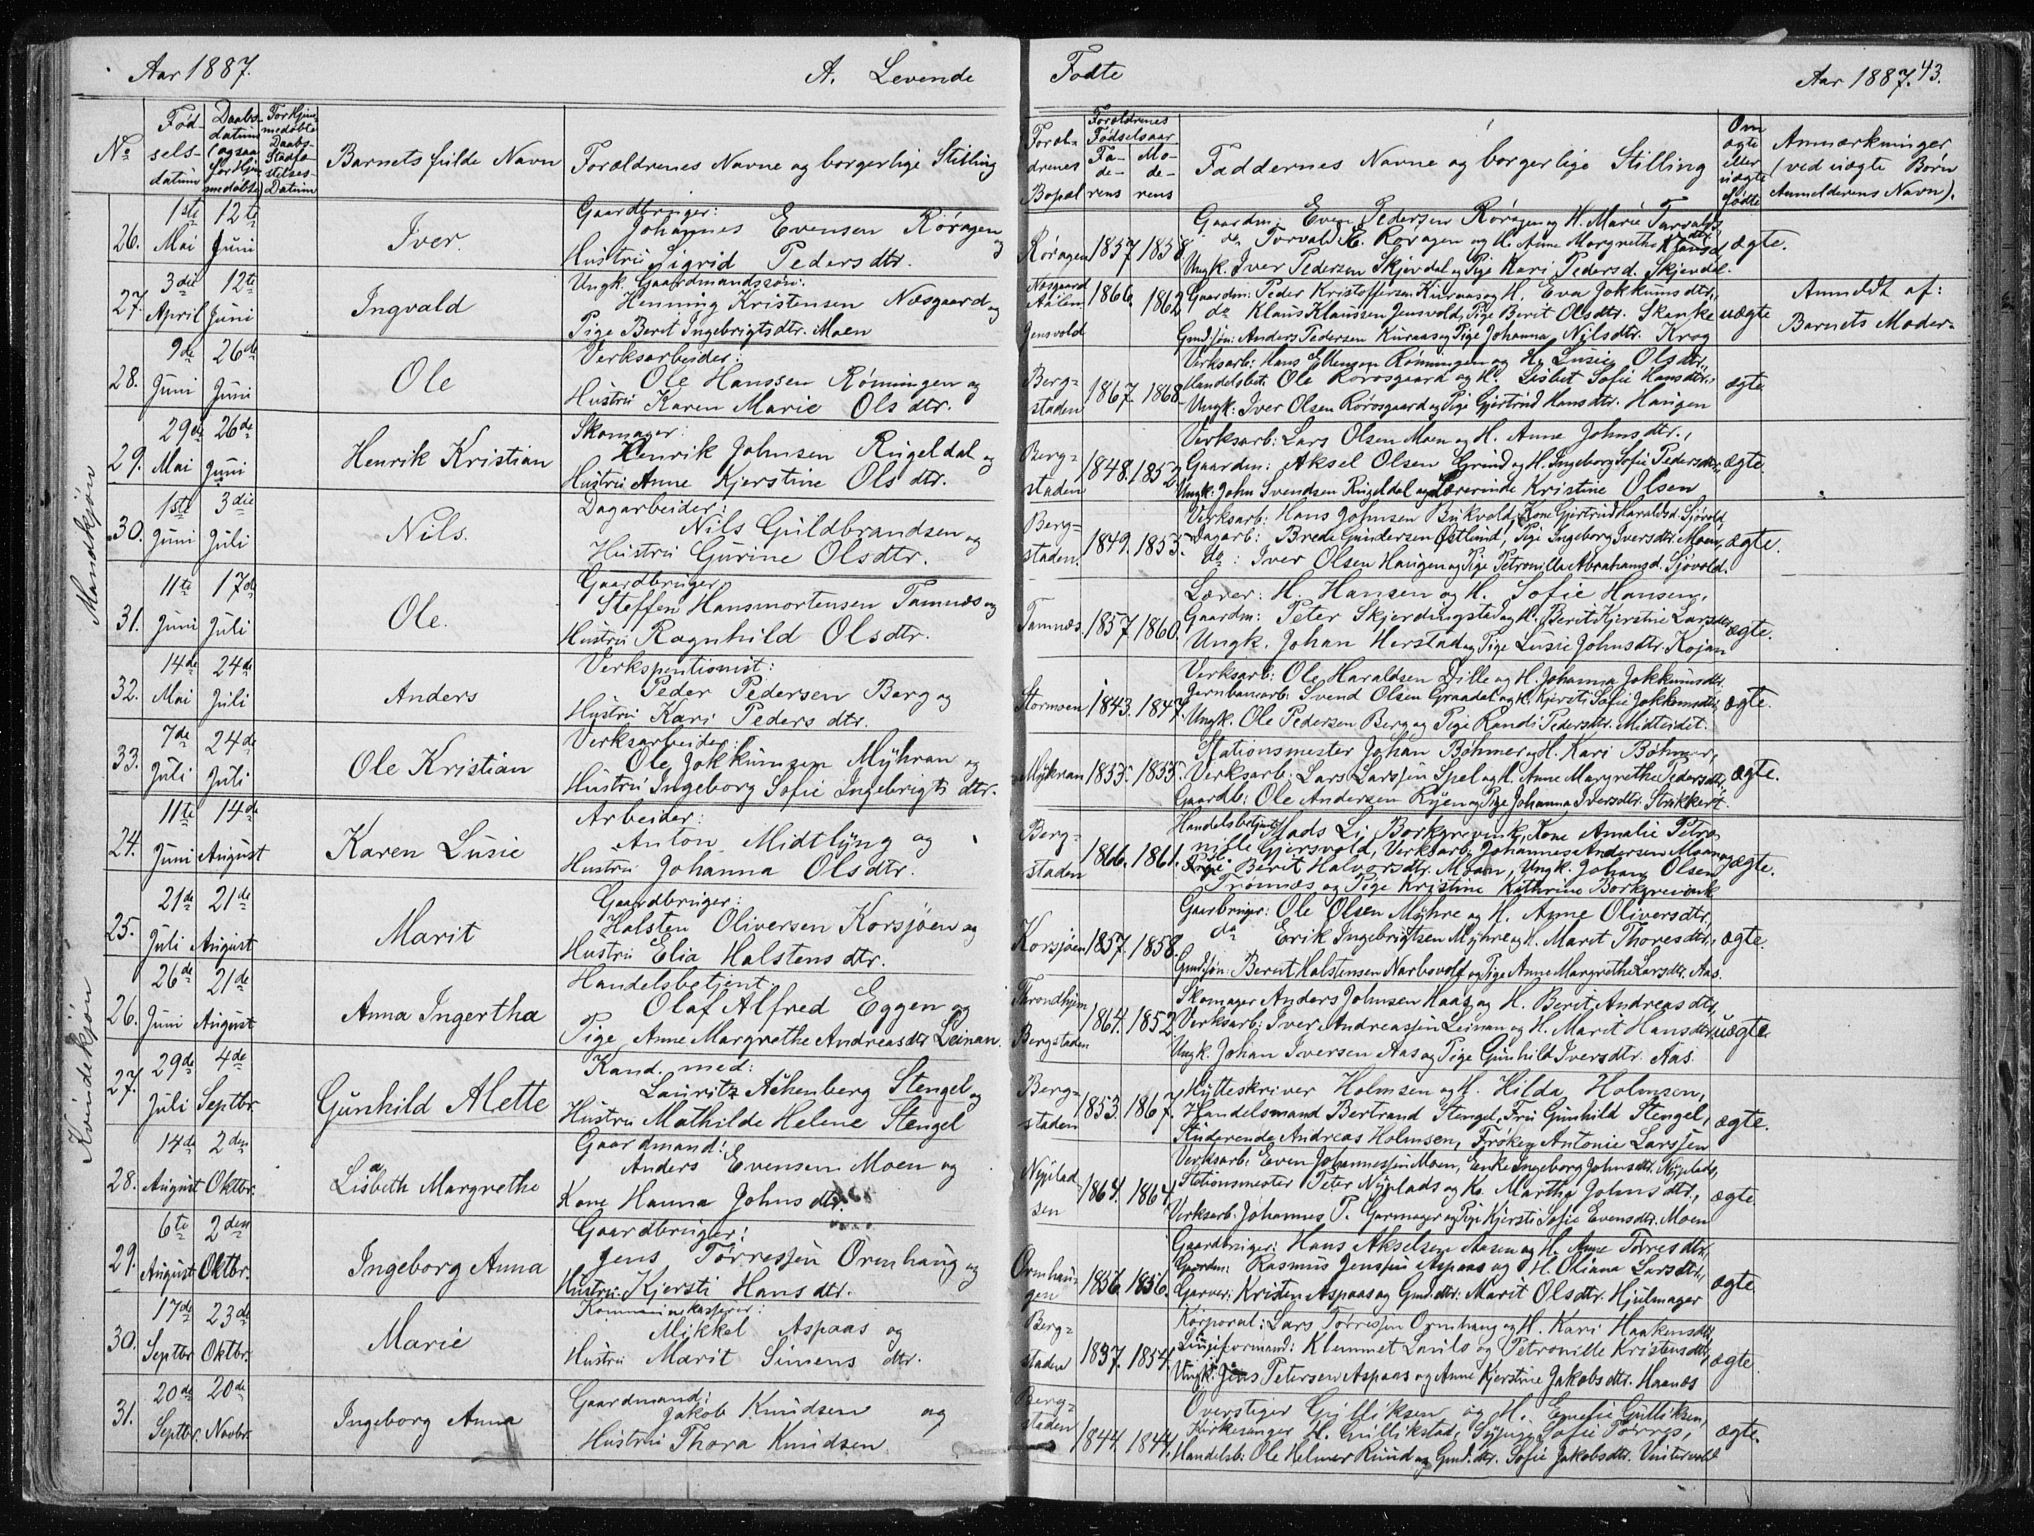 Aar 1887.
A. Levende
Fødte
Aar 1887.
43.
No
Fød-
sels-
datum
Daabs-
datum
(ogsaa
for Hjem
medøbte)
For Hjem
medøbte
Daabs-
Stadfæ-
stelses-
Datum
Barnets fulde Navn
Forældrenes Navne og borgerlige Stilling
Foræl-
drenes
Bopæl
Forældrenes
Fødselsaar
Fa-
de-
rens
Mo-
de-
rens
Faddernes Navne og borgerlige Stilling
Om
ægte
eller
uægte
fødte
Anmærkninger
(ved uægte Børn
Anmelderens Navn).
Mandkjøn
26.
1ste
Mai
12te
Juni
Iver.
Gaardbruger:
Johannes Evensen Rørågen og
Hustru Sigrid Pedersdtr.
Rørågen
1857
1858
Gaardm: Even Pedersen Rørågen og H. Marie Tarvaldsd.
do Torvald E. Rørågen og H. Anne Margrethe
Ungk. Iver Pedersen Skjevdal og Pige Kari Pedersd. Skjevdal
ægte.
27.
3die
April
12te
Juni
Ingvald
Ungk. Gaardmandssøn:
Henning Kristensen Næsgaard og
Pige Berit Ingebrigtsdtr. Moen
Næsgaard
Aalen
Jensvold
1866
1862
Gaardm: Peder Kristoffersen Kuraas og H. Eva Jokkumsdtr,
do Klaus Klaussen Jensvold, Pige Berit Olsdtr. Skanke
Gmdsøn: Anders Pedersen Kuraas og Pige Johanna Nilsdtr. Krog
uægte
Anmeldt af:
Barnets Moder
28.
9de
Juni
26de
Juni
Ole
Verksarbeider:
Ole Hanssen Rønningen og
Hustru Karen Marie Olsdtr.
Berg-
staden
1867
1868
Verksarb: Hans Ellensen Rønningen og H. Lusie Olsdtr,
Handelsbet: Ole Rørosgaard og H. Lisbet Sofie Hansdtr,
Ungk: Iver Olsen Rørosgaard og Pige Gjertrud Hansdtr. Haugen
ægte
29.
29de
Mai
26de
Juni
Henrik Kristian
Skomager:
Henrik Johnsen Rugeldal og
Hustru Anne Kjerstine Olsdtr.
Berg-
staden
1848.
1852
Verksarb: Lars Olsen Moen og H. Anne Johnsdtr,
Gaardm: Aksel Olsen Grind og H. Ingeborg Sofie Pedersdtr,
Ungk. John Svendsen Rugeldal og Lærerinde Kristine Olsen
ægte.
30.
1ste
Juni
3die
Juli
Nils.
Dagarbeider:
Nils Guldbrandsen og
Hustru Gurine Olsdtr.
Berg-
staden.
1849.
1853.
Verksarb: Hans Johnsen Bukvold, Kone Gjertrud Haraldsd. Sjøvold,
Dagarb: Brede Gundersen Østlund, Pige Ingeborg Iversdtr. Moen,
do: Iver Olsen Haugen og Pige Petronille Abrahamsd. Sjøvold.
ægte.
31.
11te
Juni
17de
Juli
Ole.
Gaardbruger,
Steffen Hansmortensen Tamnæs og
Hustru Ragnhild Olsdtr.
Tamnæs.
1857.
1860.
Lærer: H. Hansen og H. Sofie Hansen,
Gaardm: Peter Skjerdingstad og H. Berit Kjerstine Larsdtr,
Ungk. Johan Herstad og Pige Lusie Johnsdtr. Kojan
ægte.
32.
14de
Mai
24de
Juli
Anders
Verkspentionist:
Peder Pedersen Berg og
Hustru Kari Pedersdtr.
Stormoen
1843.
1847.
Verksarb: Ole Haraldsen Dille og H. Johanna Jokkumsdtr
Jernbanearb: Svend Olsen Graadal og H. Kjersti Sofie Jokkumsdtr,
Ungk. Ole Pedersen Berg og Pige Randi Pedersdtr. Midtlidet.
ægte.
33.
7de
Juli
24de
Juli
Ole Kristian
Verksarbeider:
Ole Jokkumsen Myhran og
Hustru Ingeborg Sofie Ingebrigtsdtr.
Myhran
1855.
1855.
Stationsmester Johan Bøhmer og H. Kari Bøhmer,
Verksarb: Lars Larssen Spel og H. Anne Margrethe Pedersdtr,
Gaardb: Ole Andersen Ryen og Pige Johanna Iversdtr. Strikkert.
ægte.
Kvindekjøn
24.
11te
Juni
14de
August
Karen Lusie
Arbeider:
Anton Midtlyng og
Hustru Johanna Olsdtr.
Berg-
staden
1866.
1861.
Handelsbetjent Mads Li Borkgrevink, Kone Amalie Petro
nille Gjersvold, Verksarb. Johannes Andersen Moan og
Pige Berit Halvorsdtr. Moan, Ungk. Johan Olsen
Trønnæs og Pige Kristine Kathrine Borkgrevink
ægte.
25.
21de
Juli
21de
August
Marit
Gaardbruger:
Halsten Oliversen Korsjøen og
Hustru Elia Halstensdtr.
Korsjøen
1857.
1858.
Gaarbruger: Ole Olsen Myhre og H. Anne Oliversdtr.
do Erik Ingebrigtsen Myhre og H. Marit Thoresdtr,
Gmdsøn: Bernt Halstensen Narbuvol og Pige Anne Margrethe Larsdtr. Aas.
ægte.
26.
26de
Juni
21de
August
Anna Ingertha
Handelsbetjent
Olaf Alfred Eggen og
Pige Anne Margrethe Andreasdtr Leinan.
Trondhjem
Bergstaden
1864.
1852.
Skomager Anders Johnsen Haas og H. Berit Andreasdtr,
Verksarb: Iver Andreassen Leinan og H. Marit Hansdtr,
Ungk. Johan Iversen Aas og Pige Gunhild Iversdtr. Aas.
uægte.
27.
29de
Juli
4de
Septbr.
Gunhild Alette
Kand. med:
Lauritz Achenberg Stengel og
Hustru Mathilde Helene Stengel
Berg-
staden
1853.
1867.
Hytteskriver Holmsen og H. Hilda Holmsen,
Handelsmand Bertrand Stengel, Fru Gunhild Stengel,
Studerende Andreas Holmsen, Frøken Antonie Larssen
ægte.
28.
14de
August
2den
Oktbr.
Lisbeth Margrethe
Gaardmand:
Anders Evensen Moen og
Kone Hanna Johnsdtr.
Nyplad
sen
1864.
1864.
Verksarb: Even Johannessen Moen, Enke Ingeborg Johnsdtr. Nyplads,
Stationsmester Peter Nyplads og K. Martha Johnsdtr,
Verksarb. Johannes P. Garmager og Pige Kjersti Sofie Evensdtr. Moen
ægte.
29.
6te
August
2den
Oktbr.
Ingeborg Anna
Gaardbruger:
Jens Tørressen Ormhaug og
Hustru Kjersti Hansdtr.
Ormhau-
gen
1856.
1856.
Gaardbruger: Hans Akselsen Aasen og H. Anne Tørresdtr,
Gaardm: Rasmus Jenssen Aspaas og H. Oliana Larsdtr,
Garver: Kristen Aspaas og Gmd.dtr: Marit Olsdtr. Hjulmager
ægte.
30.
17de
Septbr
23de
Oktbr.
Marie
Kommunekasserer:
Mikkel Aspaas og
Hustru Marit Simensdtr.
Berg-
staden
1857.
1854.
Korporal: Lars Tørressen Ormhaug og H. Kari Haakensdtr,
Linjeformand: Klemmet Laulo og Petronille Kristensdtr,
Ungk: Jens Petersen Aspaas og Anne Kjerstine Jakobsdtr. Haanæs
ægte.
31.
20de
Septbr.
20de
Novbr.
Ingeborg Anna
Gaardmand:
Jakob Knudsen og
Hustru Thora Knudsen
Berg-
staden
1844.
1844.
Overstiger Gulliksen og H. Emelie Gulliksen,
Kirkesanger H. Gullikstad, Sofie Tørres,
Handelsb: Ole Helmer Ruud og Gmd.dtr. Sofie Jakobsdtr. Vintervold
ægte.